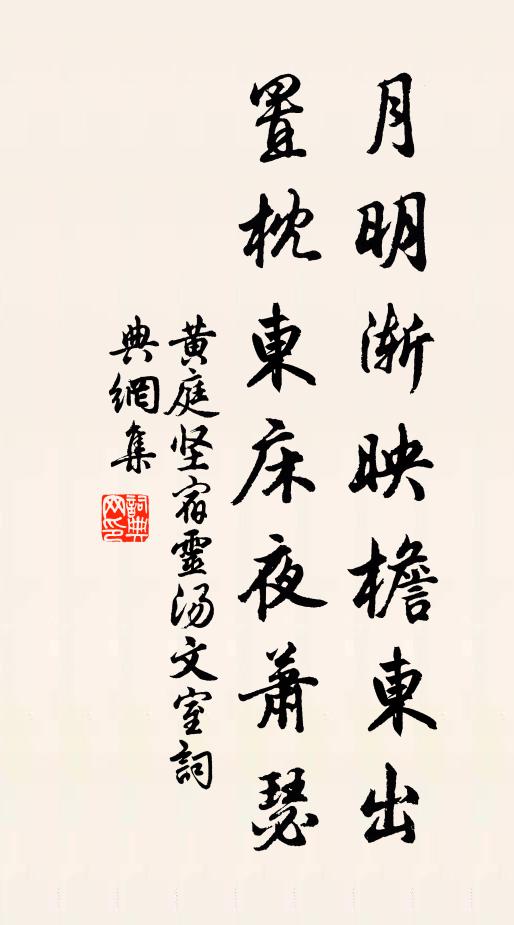 月明渐映檐東出
置枕東床夜蕭瑟
黄庭坚宿靈湯文室詞
典網集
詞典网印